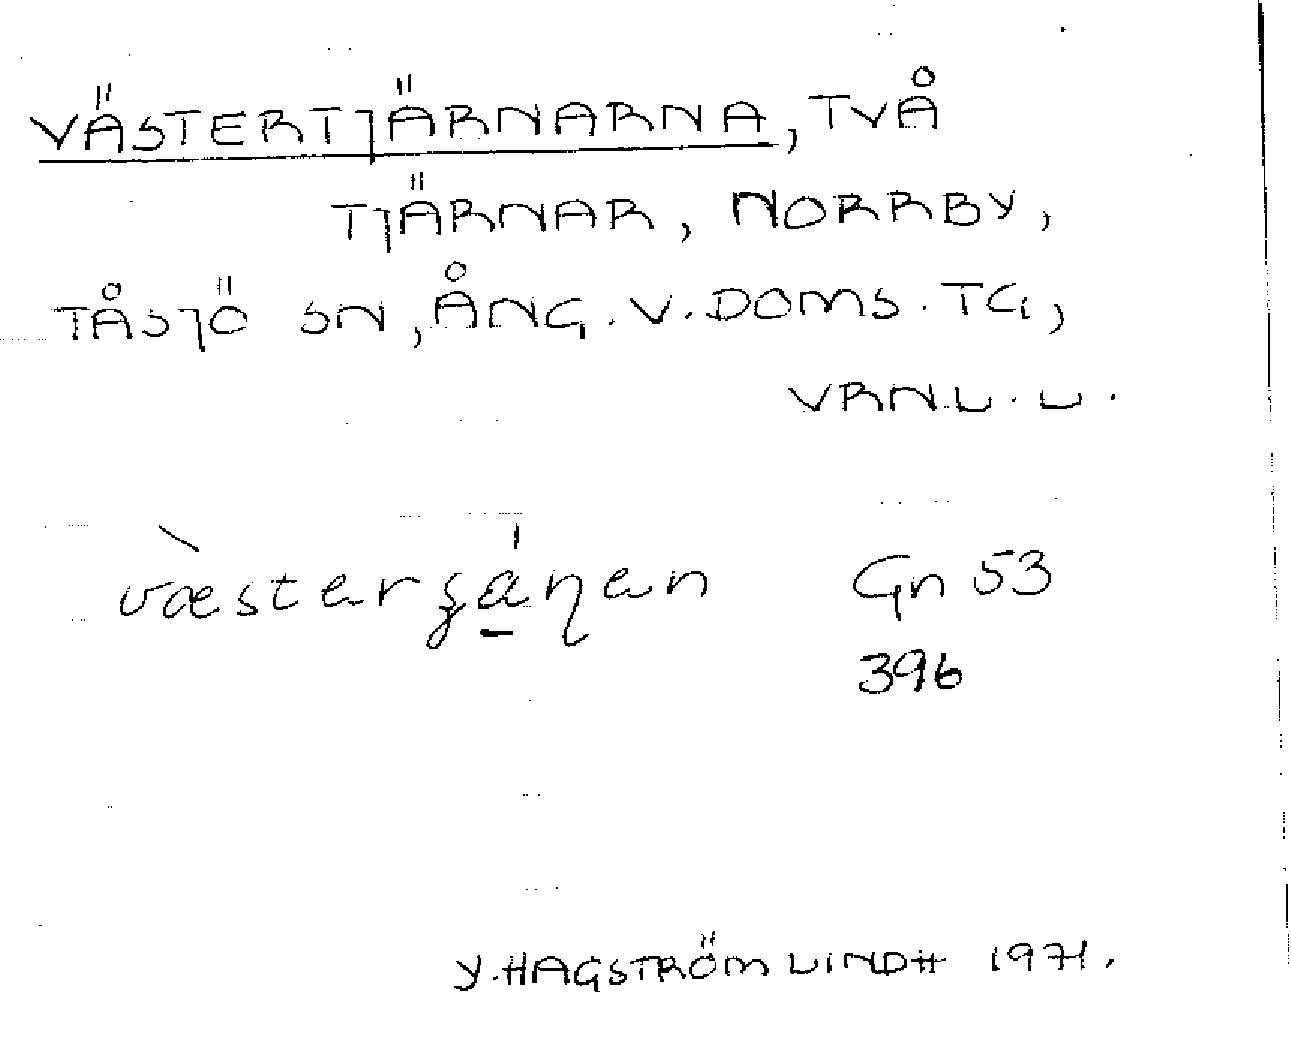 VÄSTERTJÄRNARNA, TVÅ
TJÄRNAR, NORRBY,
TÅSJÖ SN, ÅNG. V. DOMS. TG,
VRNL. L.
Gn 53
396
Y. HAGSTRÖM LINDH 1971.